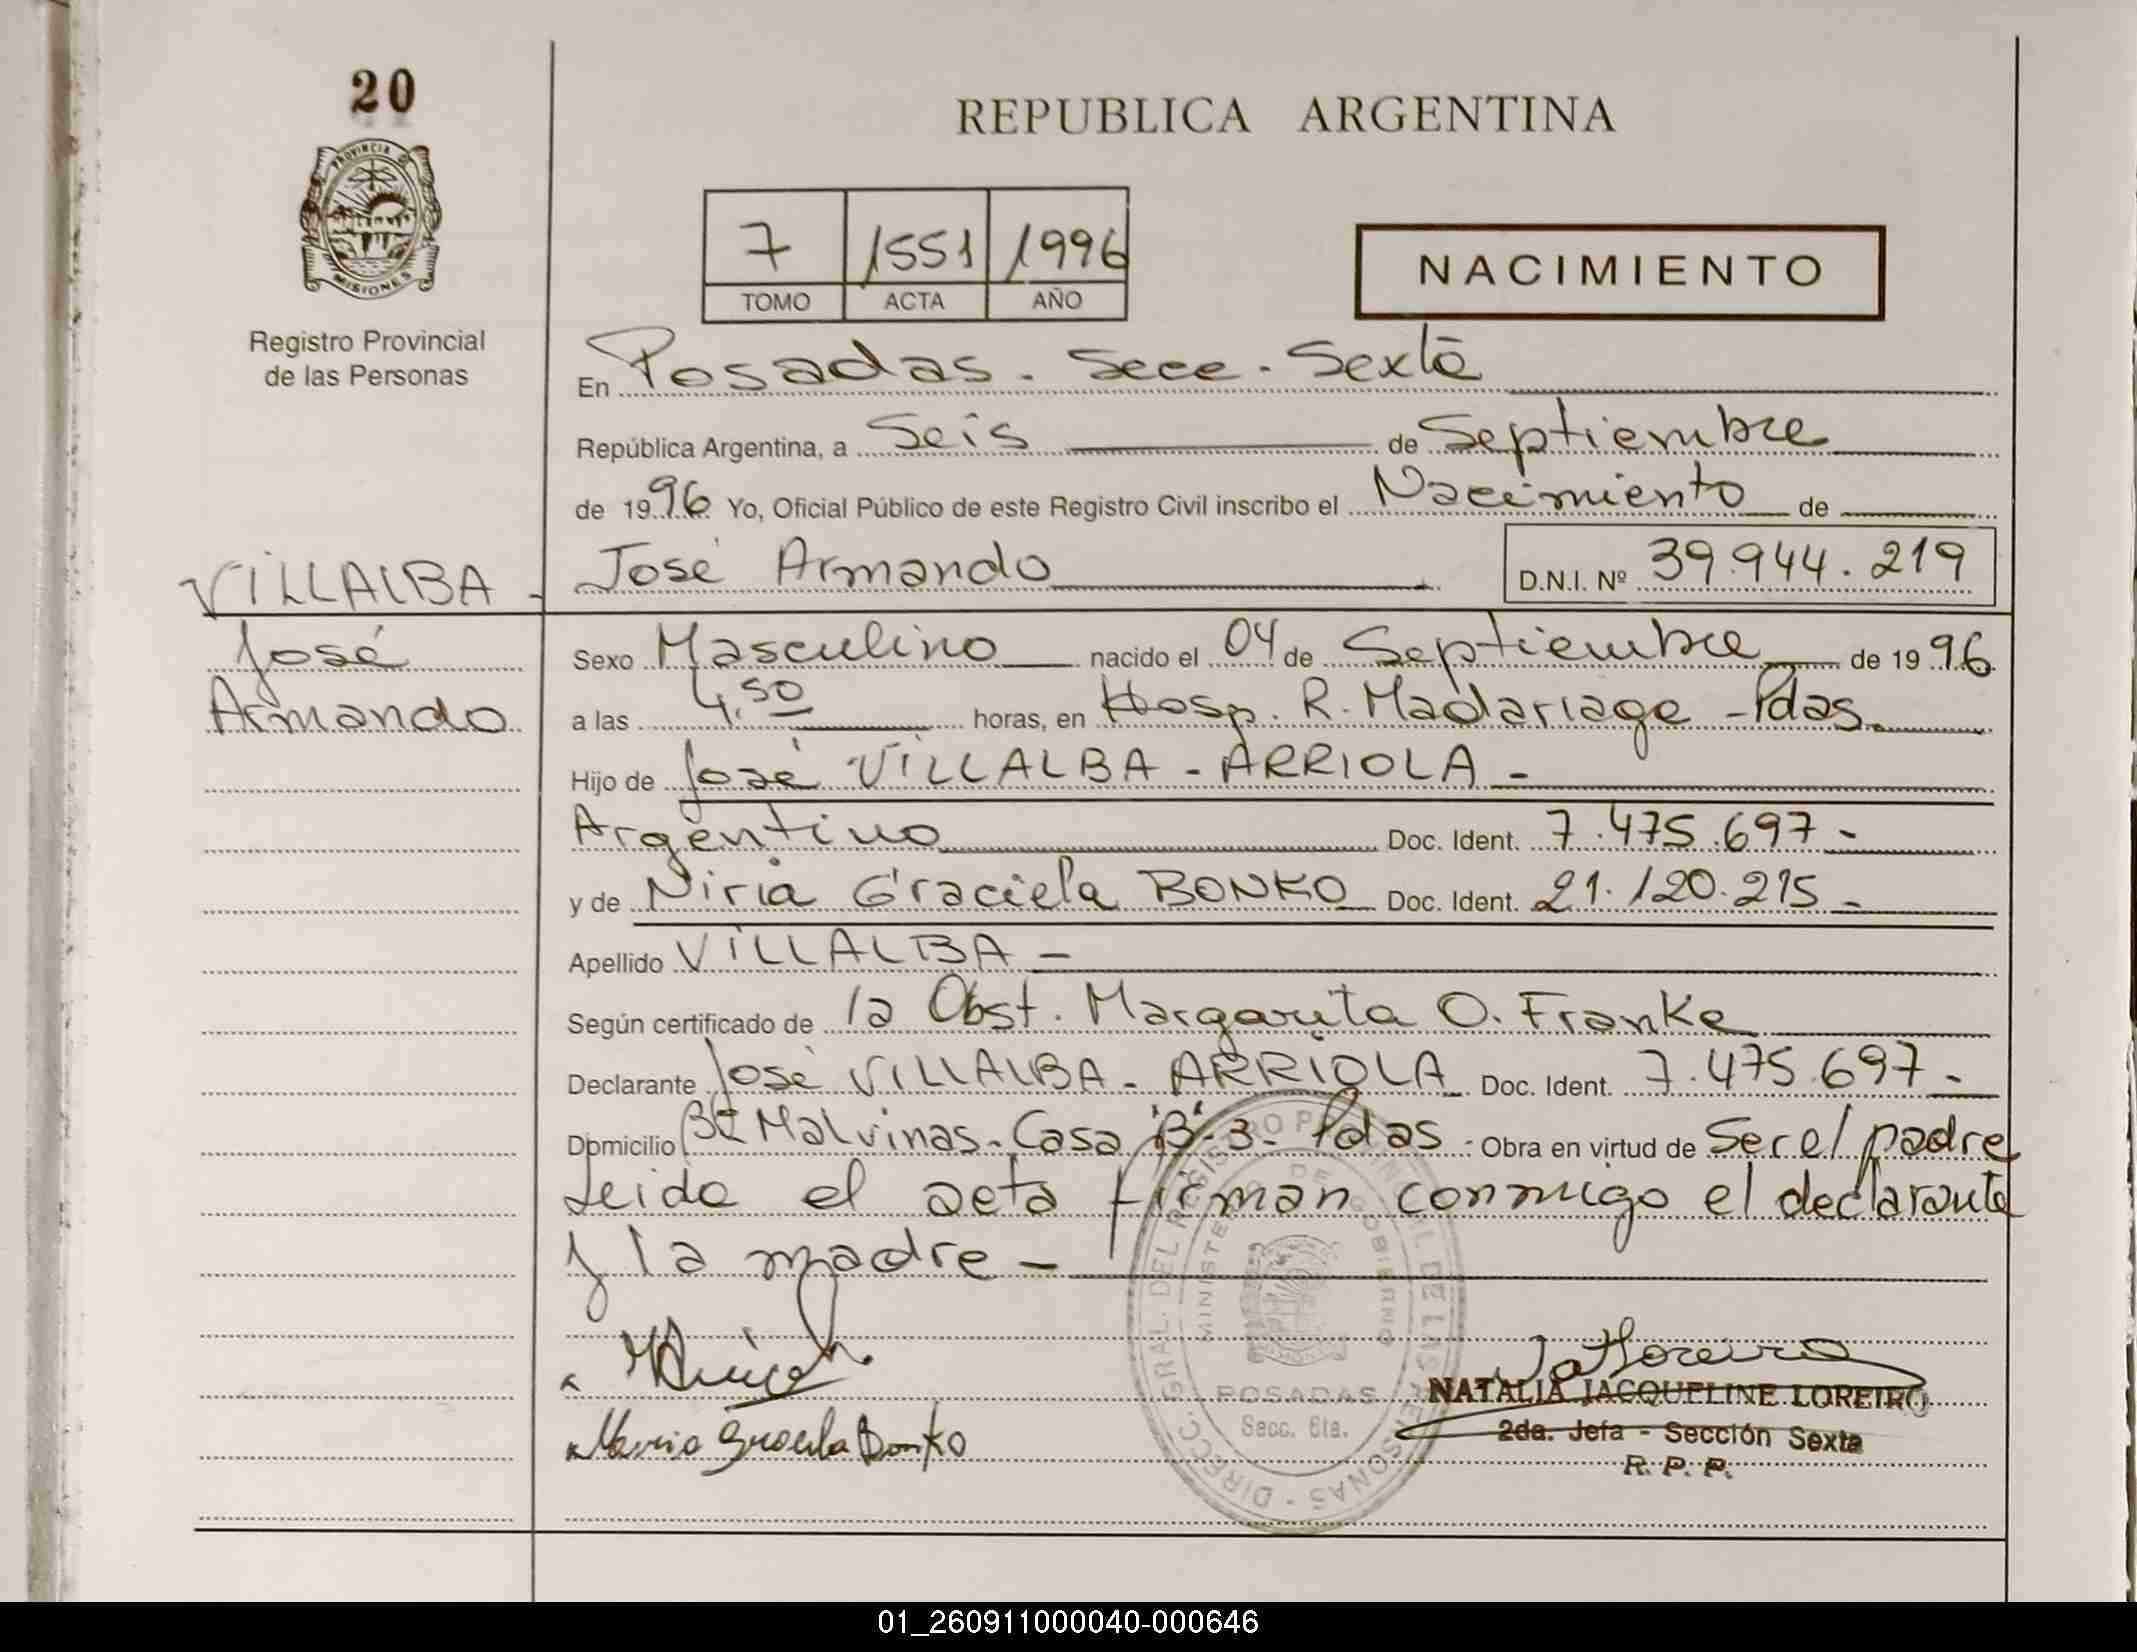 20
REPUBLICA ARGENTINA
PROVINCIA D
MISIONES
Registro Provincial
de las Personas
7 1551 1996
TOMO ACTA AÑO
NACIMIENTO
En Posadas. Secc. Sexta
República Argentina, a Seis de Septiembre
de 1996 Yo, Oficial Público de este Registro Civil inscribo el Nacimiento de
VILLALBA - José Armando D.N.I. Nº 39.944.219
José
Armando
Sexo Masculino nacido el 04 de Septiembre de 1996
a las 4,50 horas, en Hosp. R. Madariaga - Pdas.
Hijo de José VILLALBA - ARRIOLA -
Argentino Doc. Ident. 7.475.697 -
y de Niria Graciela BONKO Doc. Ident. 21.120.215 -
Apellido VILLALBA -
Según certificado de la Obst. Margarita O. Franke
Declarante José VILLALBA - ARRIOLA Doc. Ident. 7.475.697 -
Domicilio Malvinas - Casa "B"-3- Pdas. Obra en virtud de Ser el padre
Leida el acta firman conmigo el declarante
y la madre -
DIRECC. GRAL. DEL REGISTRO PROVINCIAL DE LAS PERSONAS -
MINISTERIO DE GOBIERNO
POSADAS
Secc. 6ta.
Graciela Bonko
NATALIA JACQUELINE LOREIRO
2da. Jefa - Sección Sexta
R. P. P.
01_260911000040-000646